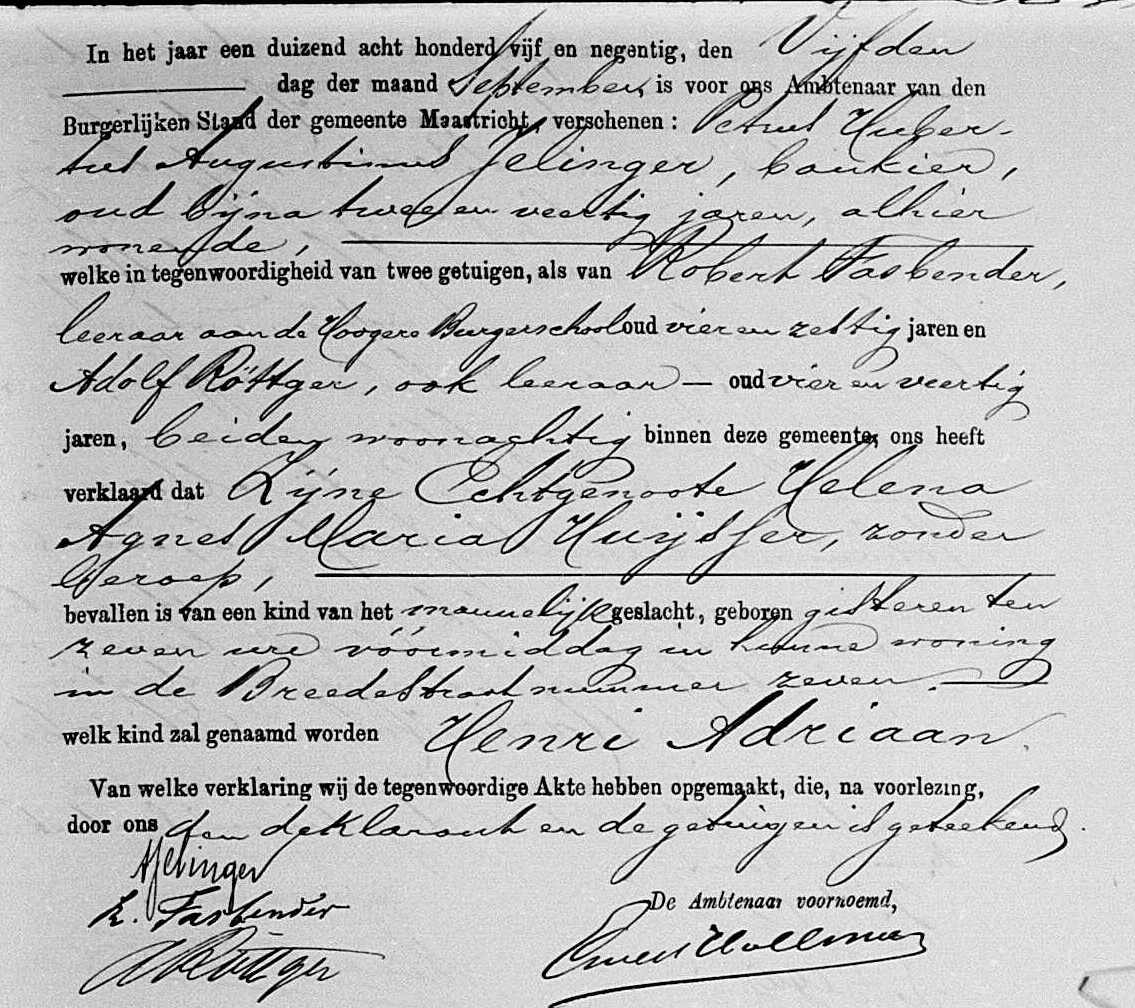 In het jaar een duizend acht honderd vijf en negentig, den Vijfden
dag der maand September, is voor ons Ambtenaar van den
Burgerlijken Stand der gemeente Maastricht, verschenen: Petrus Huber-
tus Augustinus Jelinger, bankier,
oud bijna twee en veertig jaren, alhier
wonende,
welke in tegenwoordigheid van twee getuigen, als van Robert Fasbender,
leeraar aan de Hoogere Burgerschool oud vier en zestig jaren en
Adolf Röttger, ook leeraar — oud vier en veertig
jaren, beiden woonachtig binnen deze gemeente, ons heeft
verklaard dat Zijne Echtgenoote Helena
Agnes Maria Huijsser, zonder
beroep,
bevallen is van een kind van het mannelijk geslacht, geboren gisteren ten
zeven ure vóórmiddag in hunne woning
in de Breedestraat nummer zeven.
welk kind zal genaamd worden Henri Adriaan.
Van welke verklaring wij de tegenwoordige Akte hebben opgemaakt, die, na voorlezing,
door ons, den deklarant en de getuigen is geteekend.
Jelinger
R. Fasbender
De Ambtenaar voornoemd,
A Röttger